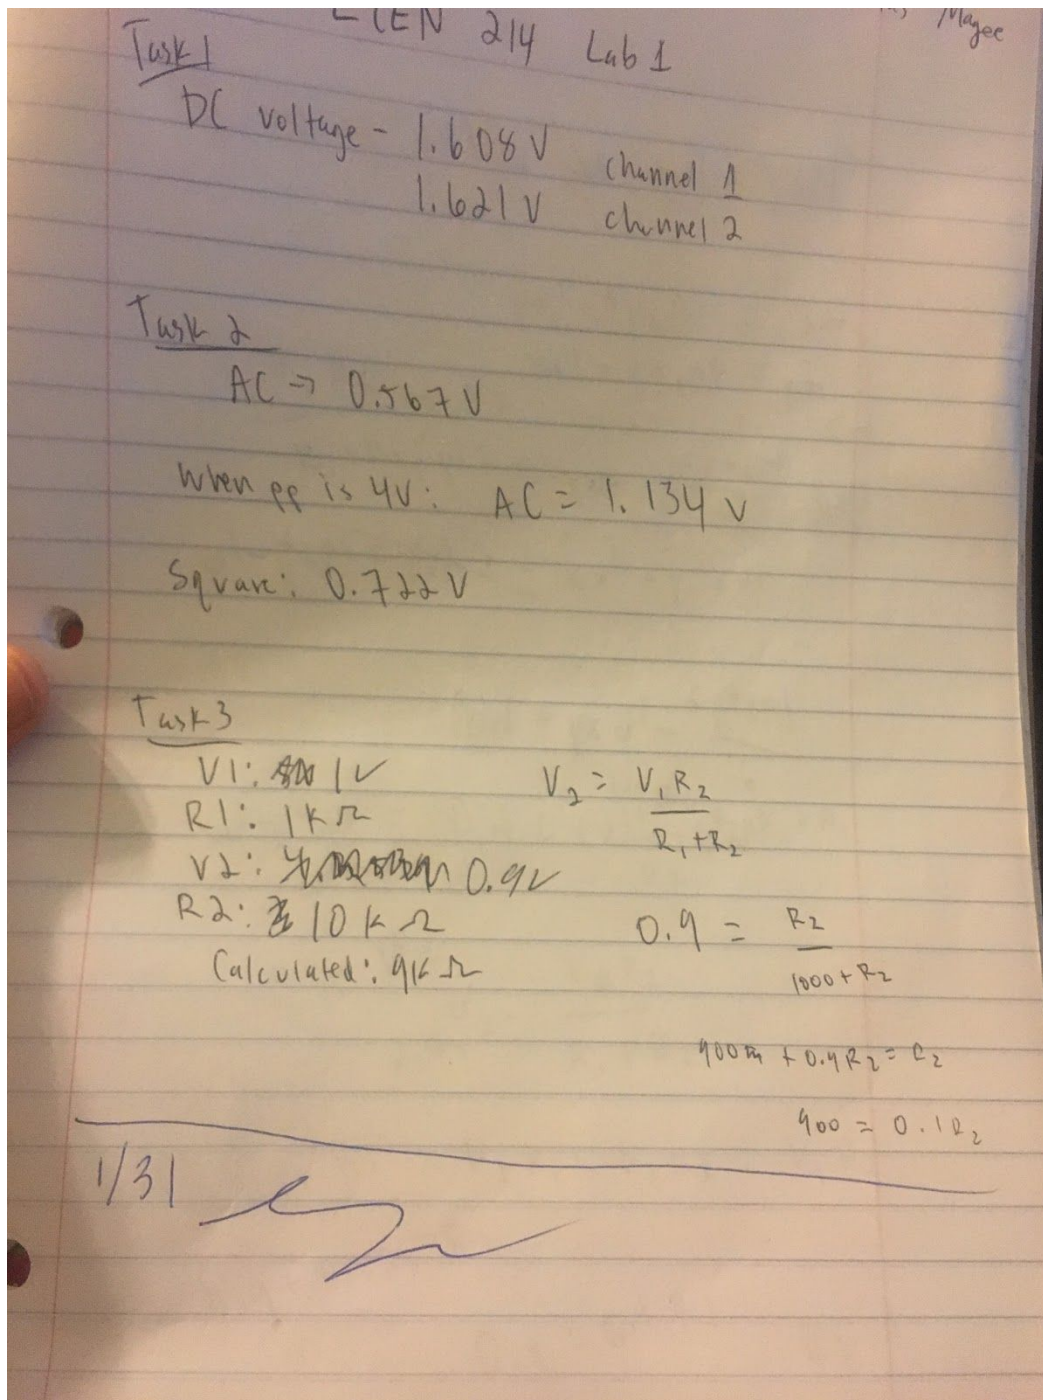 214 Lab 1
Magee
Task 1
DC voltage - 1.608 V channel 1
1.621 V channel 2
Task 2
AC → 0.567 V
When pp is 4V: AC = 1.134 V
Square: 0.722 V
Task 3
V1: 1V
R1: 1KΩ
V2: 0.9V
R2: 10 KΩ
Calculated: 9KΩ
V2 = V1 R2
R1 + R2
0.9 = R2
1000 + R2
900 + 0.9 R2 = R2
900 = 0.1 R2
1/31